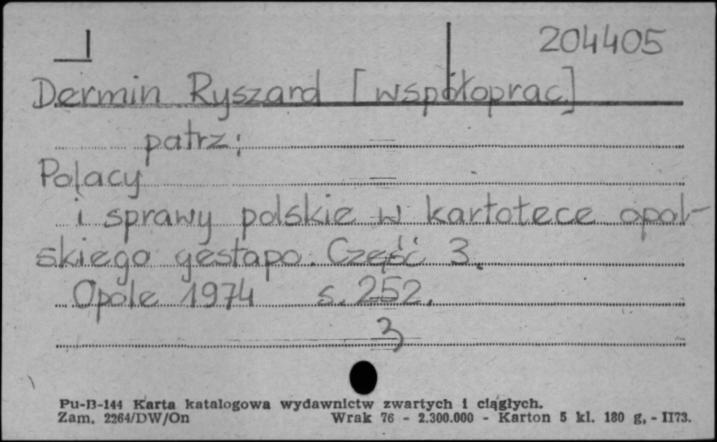 204405
Dermin Ryszard [współoprac.]
patrz:
Polacy
i sprawy polskie w kartotece opol-
skiego gestapo. Część 3.
Opole 1974 s. 252.
3
Pu-B-144 Karta katalogowa wydawnictw zwartych i ciągłych.
Zam. 2264/DW/On Wrak 76 - 2.300.000 - Karton 5 kl. 180 g. - II73.